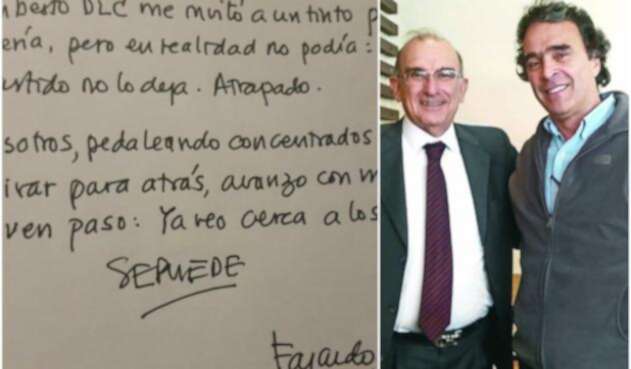 mberto DLC me invitó a un tinto p
ería, pero en realidad no podía:
artido no lo deja. Atrapado.
sotros, pedaleando concentrados
irar para atrás, avanzo con
ven paso: Ya veo cerca a los
SE PUEDE
Fajardo